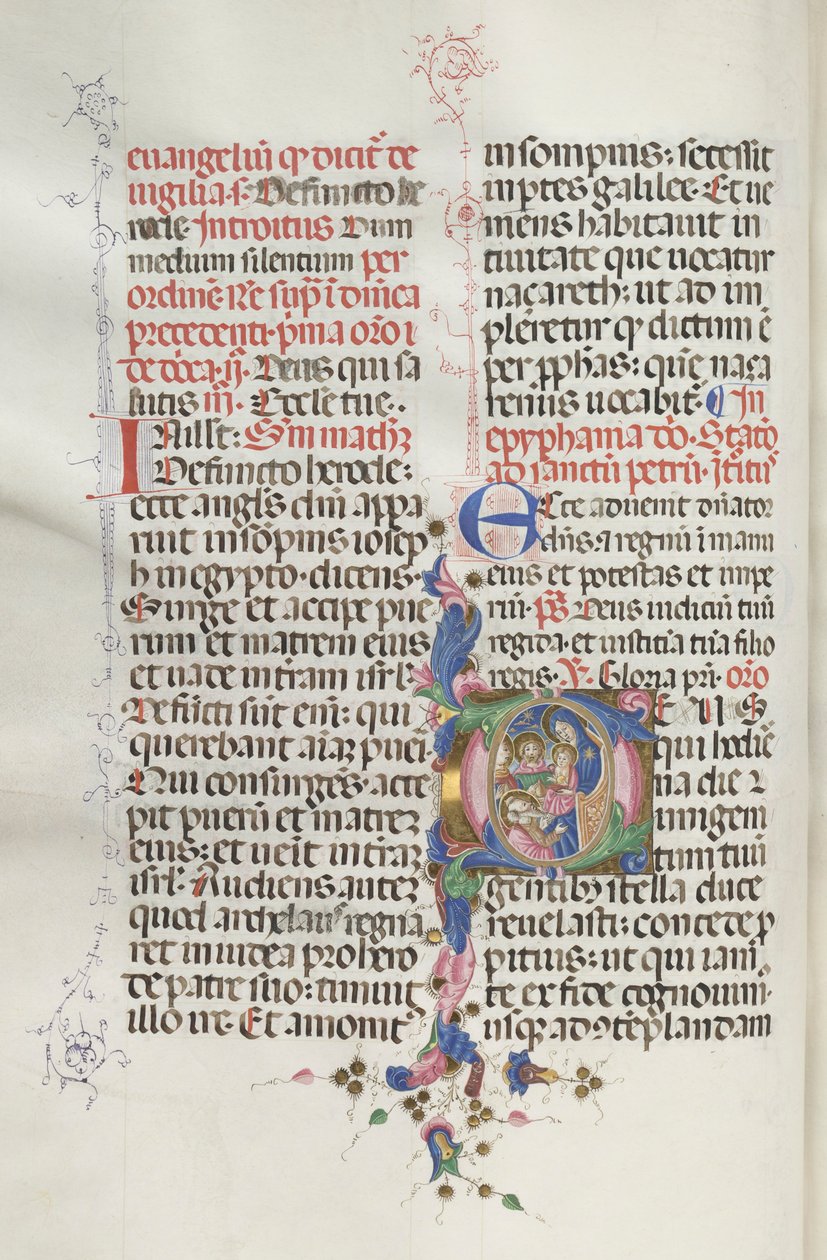 euangeliū qď dicit̄ de
uigilia. s. Defuncto he
rode. Introitus Dum
medium silentium per
ordinē. Re sup̄ i dn̄ica
precedenti. p̄ma oro i
Deus qui sa
lutis iij. Eccle tue..
In ill t. Sm math'z
Defuncto herode:
ecce angl's dn̄i appa
ruit in sōpnis iosep
h in egypto. dicens.
Surge et accipe pue
rum et matrem eius
et uade in tr̄am isrl'.
Defūcti sūt enī: qui
querebant aīaʒ pueri.
Qui consurgēs. acce
pit puerū et matreʒ
eius: et ueīt in tr̄aʒ
isrl'. Audiens auteʒ
quod archelaus regna
ret in iudea pro hero
de patre suo: timuit
illo ire. Et amonit'
in sompnis: secessit
in p̄tes galilee. Et ue
niens habitauit in
ciuitate que uocatur
naçareth: ut ad im
pleretur qď dictum ē
per pp̄has: qm̄ naça
renus uocabit̄. In
epyphania dō. Statō
ad sanctū petrū. Itroitus
Ecce aduenit dn̄ator
dn̄s. et regnū ī manu
eius et potestas et impe
riū. ps̄ Deus iudiciū tuū
regi da. et iustitia tua filio
regis. V. Gloria pri. oro
DEUS
qui hodiē
na die u
unigeni
tum tuū
gentibʒ stella duce
reuelasti: concede p
pitius: ut qui iam
te ex fide cognouim'.
usqʒ ad 9tēplandam